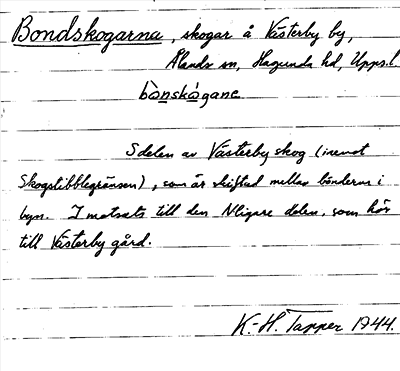 Bondskogarna, skogar å Västerby by,
Ålands sn, Hagunda hd, Upps. l.
bònskógane
Sdelen av Västerby skog (invnot
Skogstibblegränsen), som är skiftad mellan bönderna i
byn. I motsats till den Nligare delen, som hör
till Västerby gård.
K.-H. Tapper 1944.